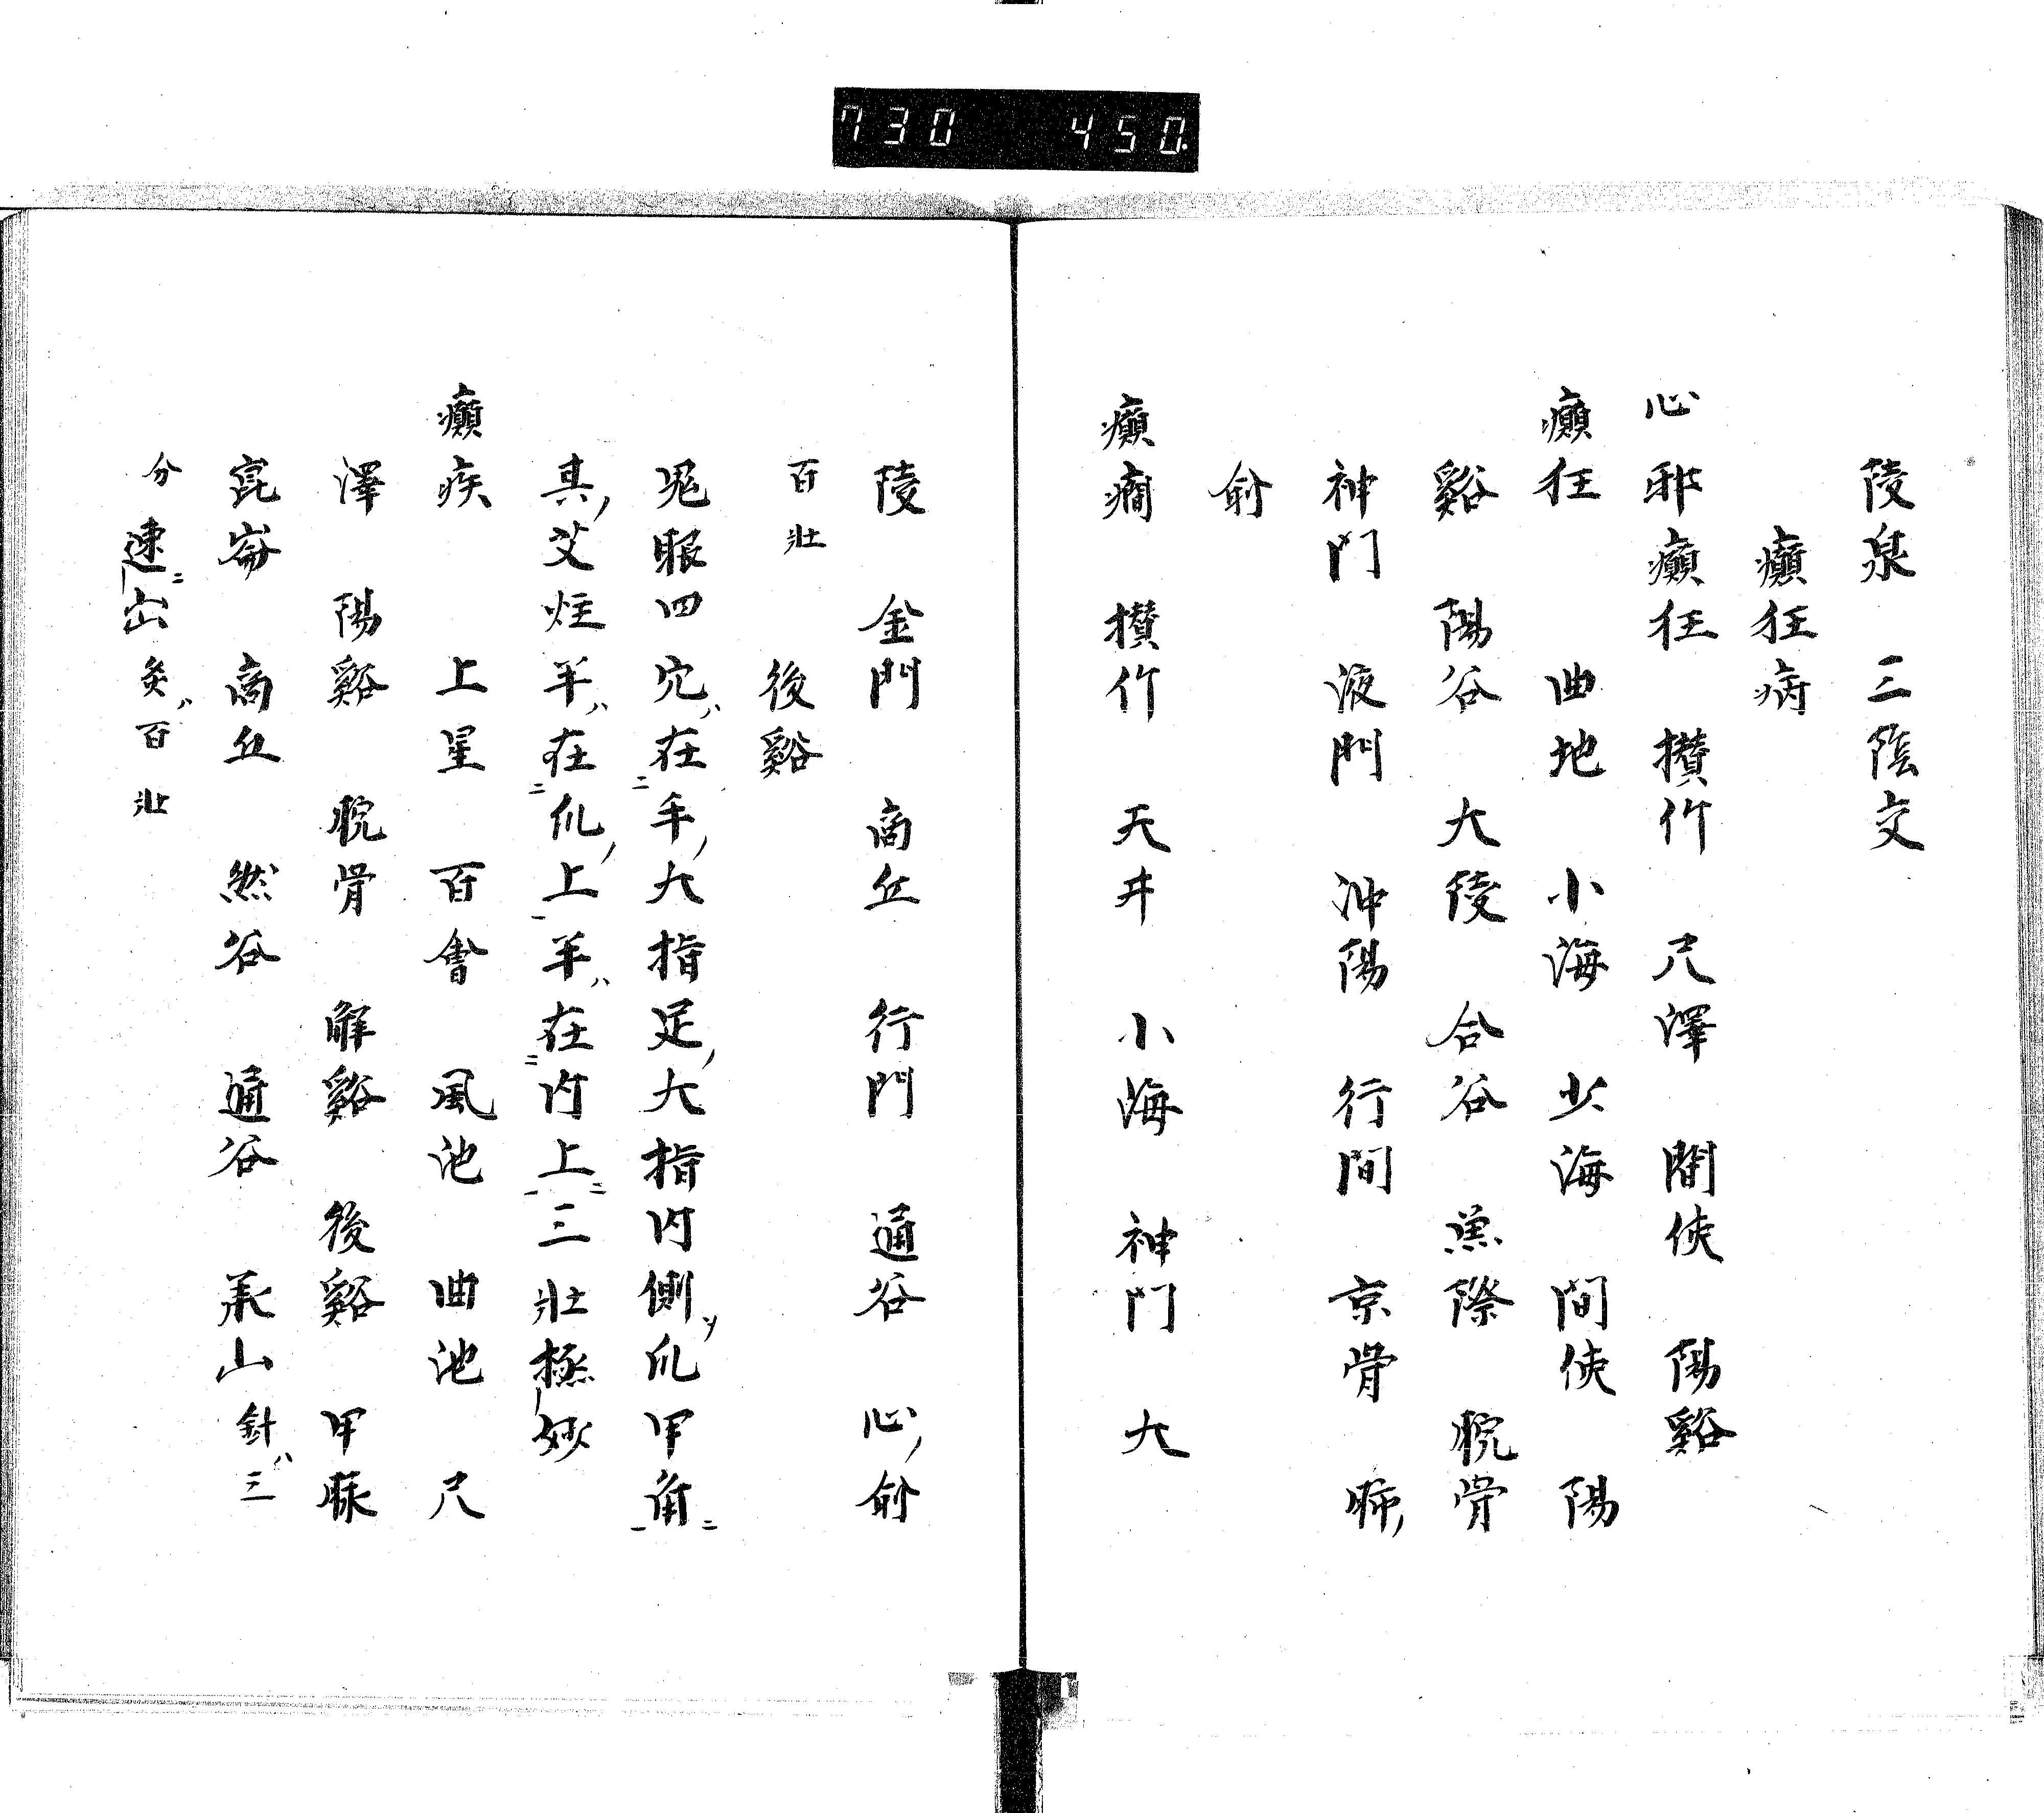 730 450
陵泉 三陰交
癲狂病
心邪癲狂 攅竹 尺澤 間使 陽谿
癲狂 曲地 小海 少海 間使 陽
谿 陽谷 大陵 合谷 魚際 腕骨
神門 液門 沖陽 行間 京骨 肺ノ
俞
癲癇 攅竹 天井 小海 神門 大
陵 金門 商丘 行門 通谷 心ノ俞
百壯 後谿
鬼眼四穴ハ在二手ノ大指足ノ大指内側ソ爪甲角一ニ
其ノ艾炷半ハ在二爪ノ上一半ハ在二内上一ニ三壯極ノ妙
癲疾 上星 百會 風池 曲池 尺
澤 陽谿 腕骨 解谿 後谿 甲脈
崑崙 商丘 然谷 通谷 承山針ハ三
分速ニ出灸ハ百壯